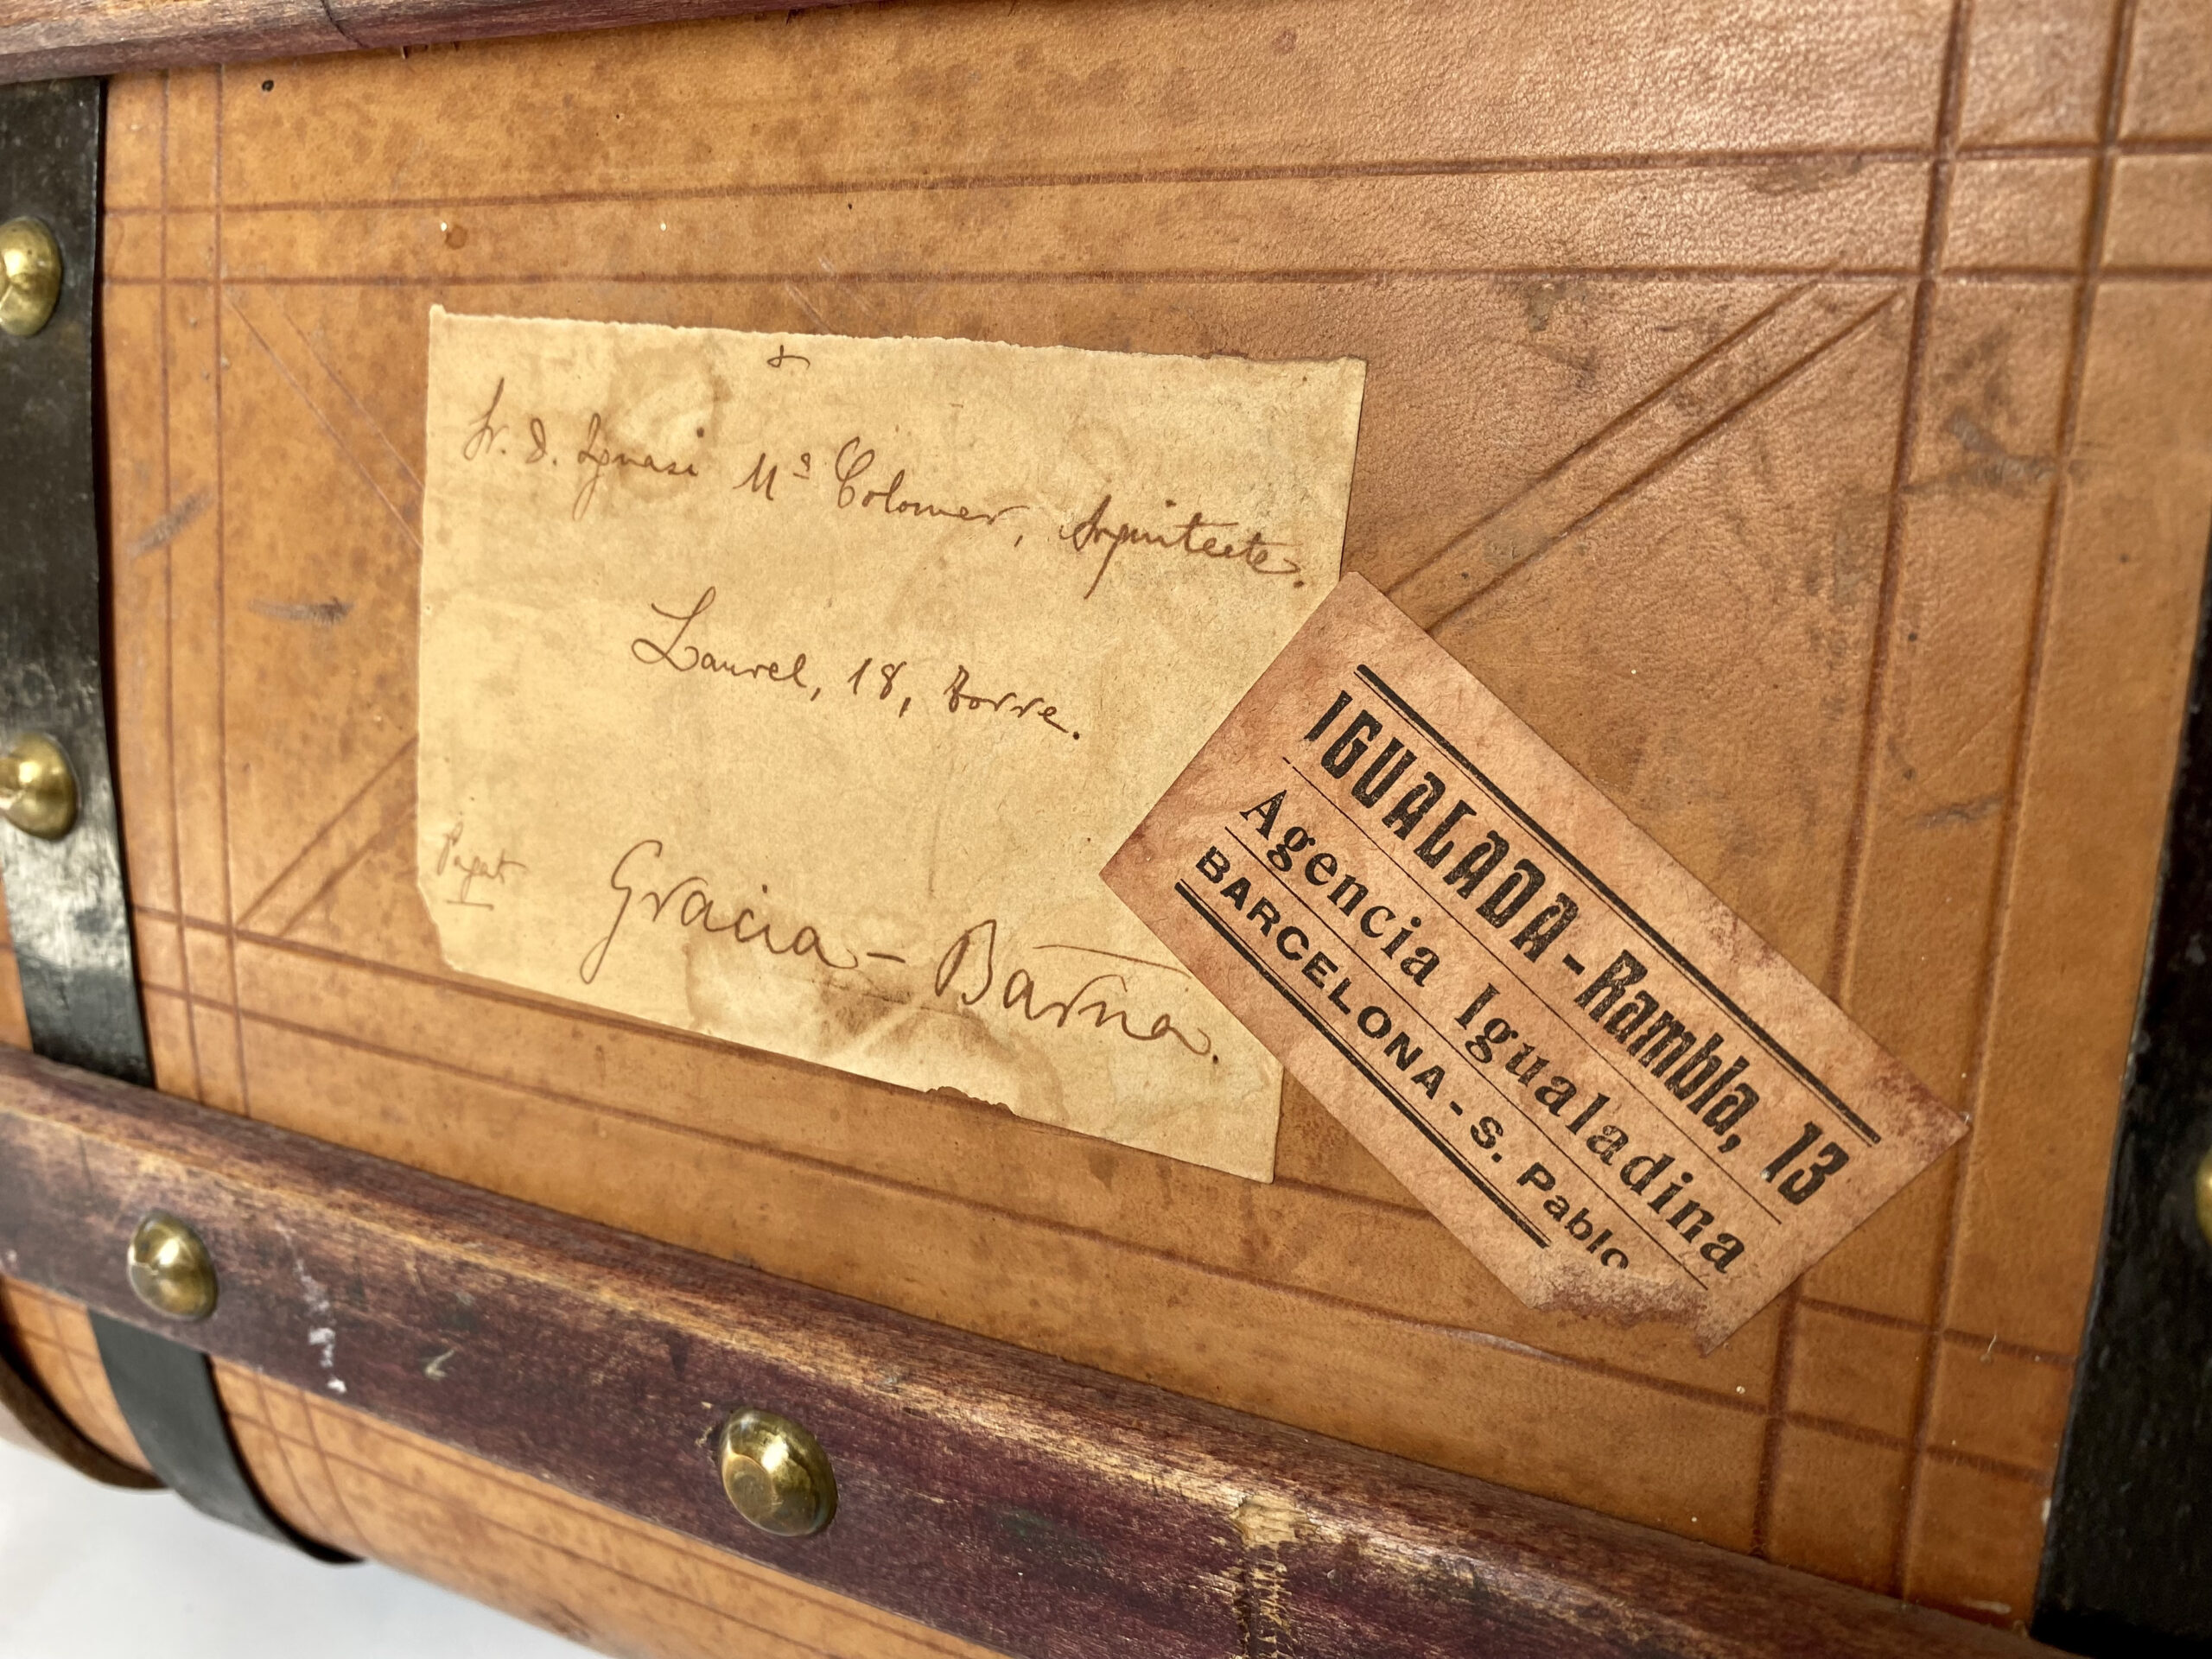 +
Sr. D. Ignasi Mª Colomer, Arquitecte.
Laurel, 18, torre.
Pagat
Gracia - Barna.
IGUALADA - Rambla, 13
Agencia Igualadina
BARCELONA - S. Pablo